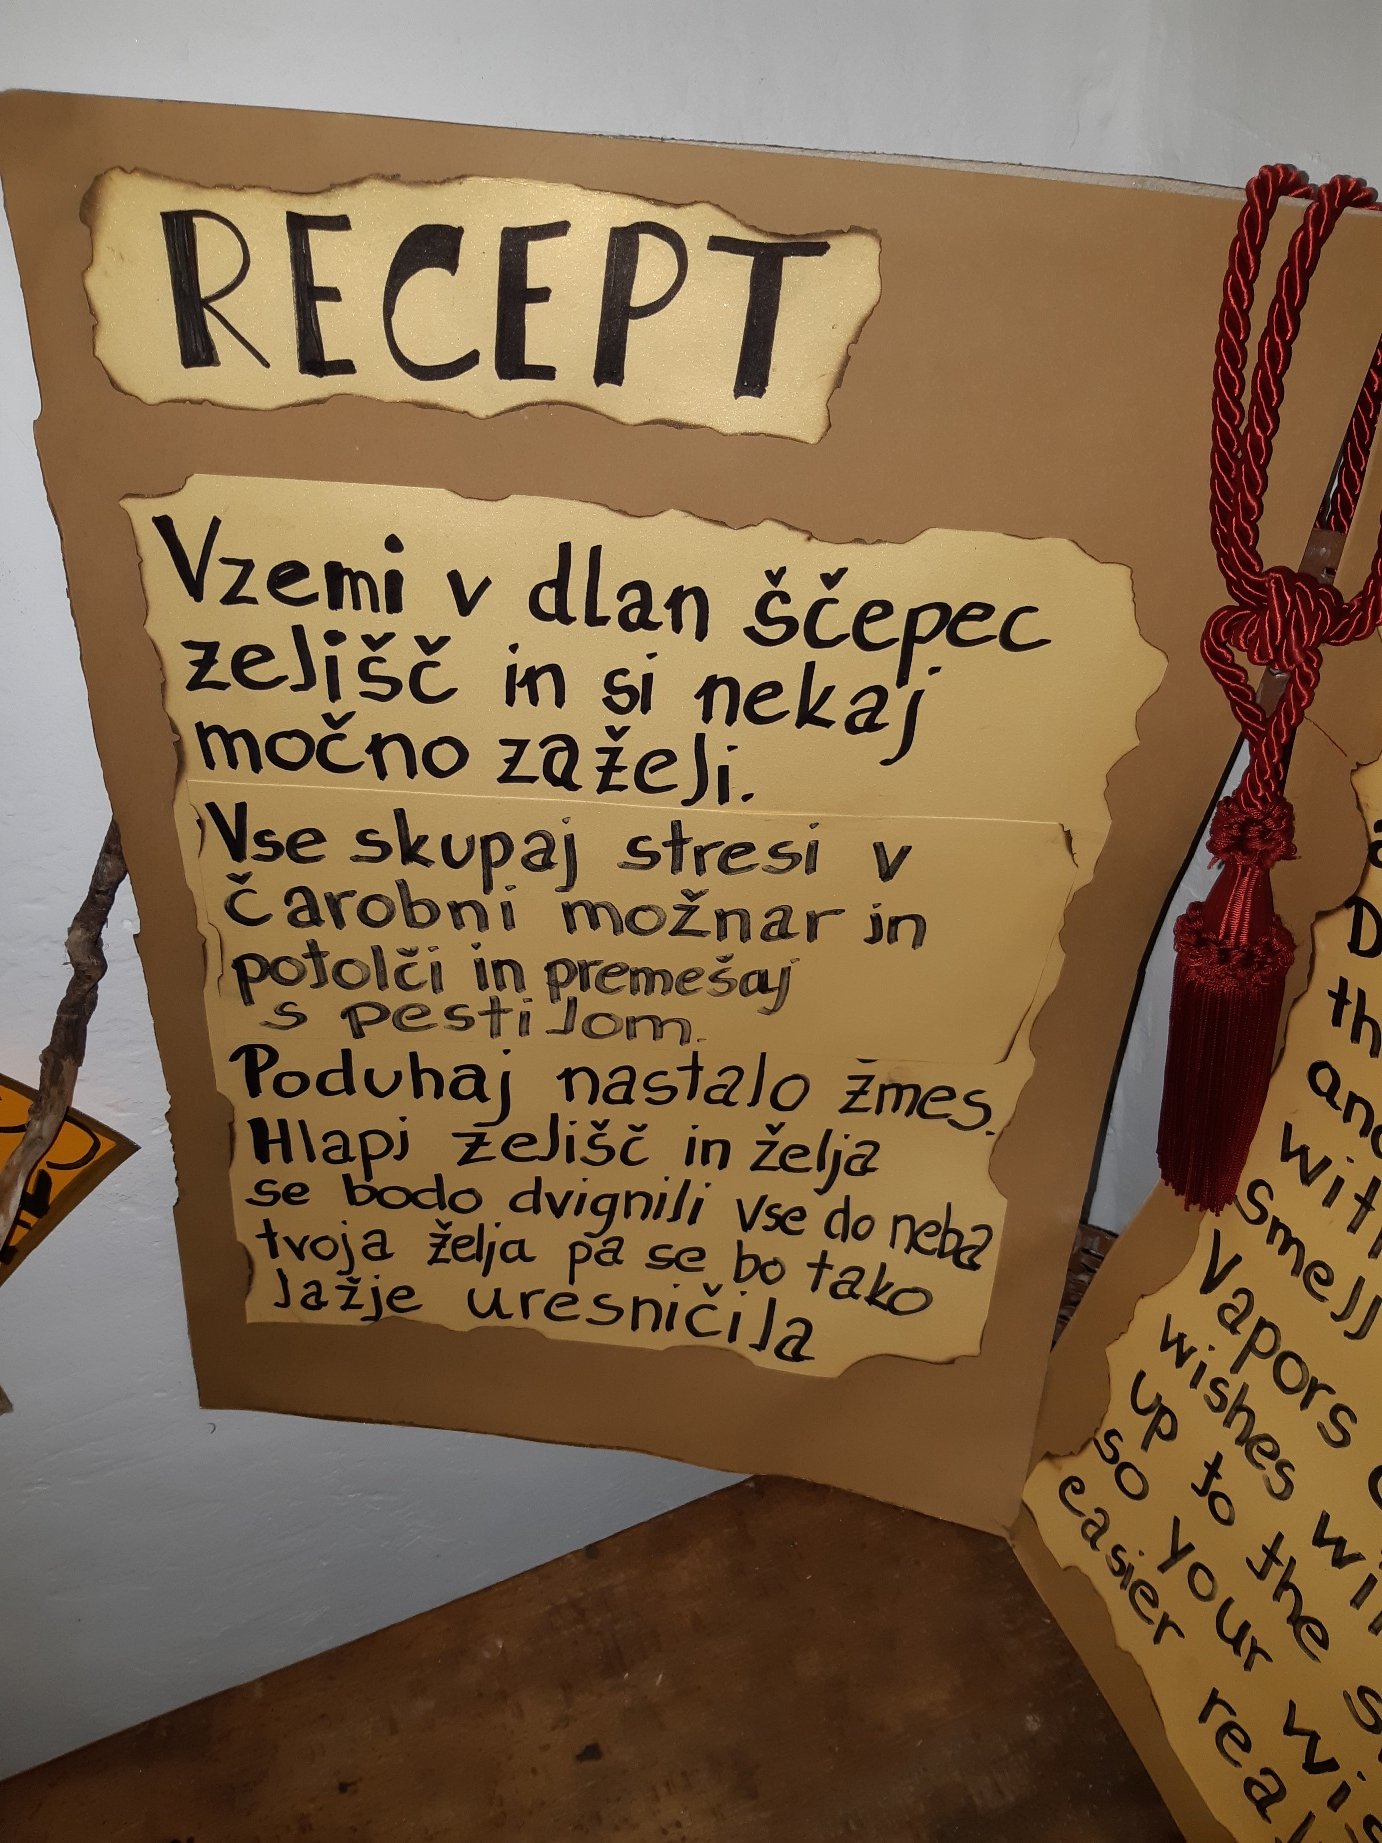 RECEPT
Vzemi v dlan ščepec
zelišč in si nekaj
močno zaželi.
Vse skupaj stresi v
čarobni možnar in
potolči in premešaj
s pestilom.
Poduhaj nastalo žmes.
Hlapi zelišč in želja
se bodo dvignili vse do neba
tvoja želja pa se bo tako
lažje uresničila
th
and
with
smell
Vapors
wishes
up to the
so your
easier